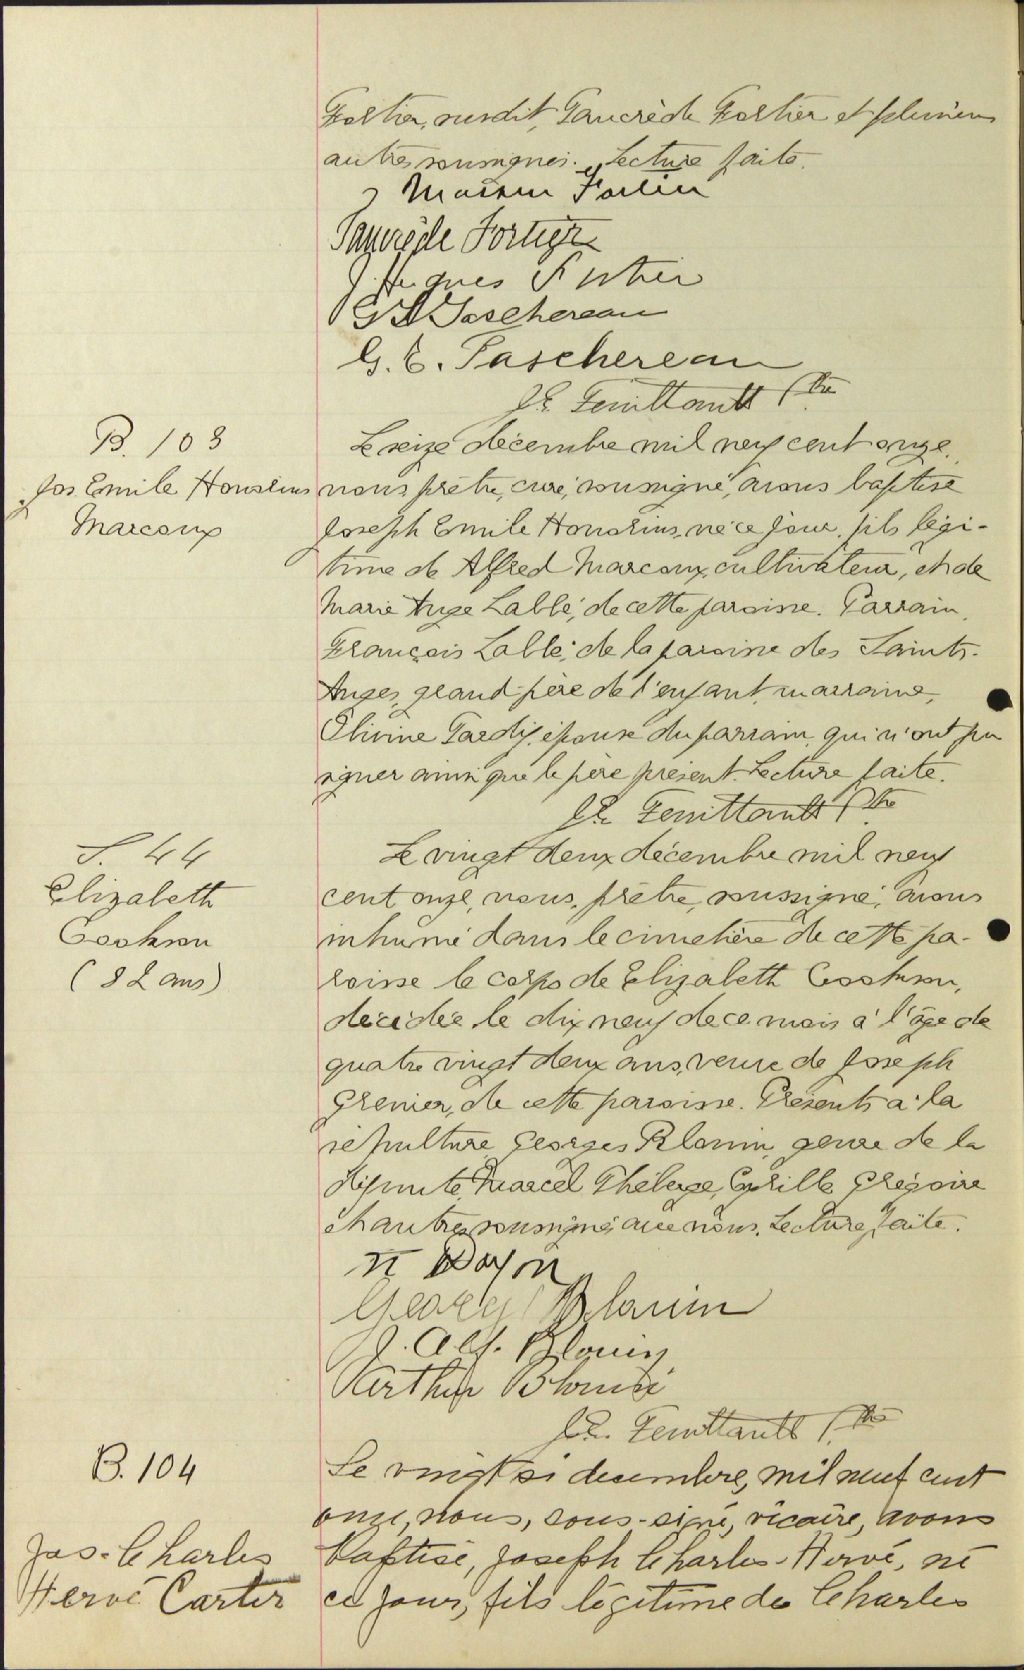 Fortier, susdit, Tancrède Fortier et plusieurs
autres soussignés. Lecture faite.
Fortier
Tancrède Fortier
J. Hugues Fortier
G L Taschereau
G. E. Taschereau
J.E. Feuiltault Ptre
B. 103
Jos Emile Honorius
Marcoux
Le seize décembre mil neuf cent onze,
nous prêtre, curé, soussigné, avons baptisé
Joseph Emile Honorius, né ce jour, fils légi-
time de Alfred Marcoux, cultivateur, et de
Marie Ange Labbé, de cette paroisse. Parrain,
François Labbé, de la paroisse des Saints-
Anges, grand-père de l'enfant, marraine,
Olivine Tardif, épouse du parrain, qui n'ont pu
signer ainsi que le père présent. Lecture faite.
J.E. Feuiltault Ptre
S. 44
Elizabeth
Cookson
(82 ans)
Le vingt deux décembre mil neuf
cent onze, nous, prêtre, soussigné, avons
inhumé dans le cimetière de cette pa-
roisse le corps de Elizabeth Cookson,
décédée le dix neuf de ce mois à l'âge de
quatre vingt deux ans, veuve de Joseph
Grenier, de cette paroisse. Présents à la
sépulture Georges Blouin, gendre de la
défunte, Marcel Théberge, Cyrille Grégoire
et autres soussignés avec nous. Lecture faite.
Doyon
George Blouin
J. Alf. Blouin
Arthur Blouin
J.E. Feuiltault Ptre
B. 104
Jos-Charles
Hervé Carter
Le vingt si decembre, mil neuf cent
onze, nous, sous-signé, vicaire, avons
baptisé, Joseph Charles-Hervé, né
ce jour, fils légitime de Charles